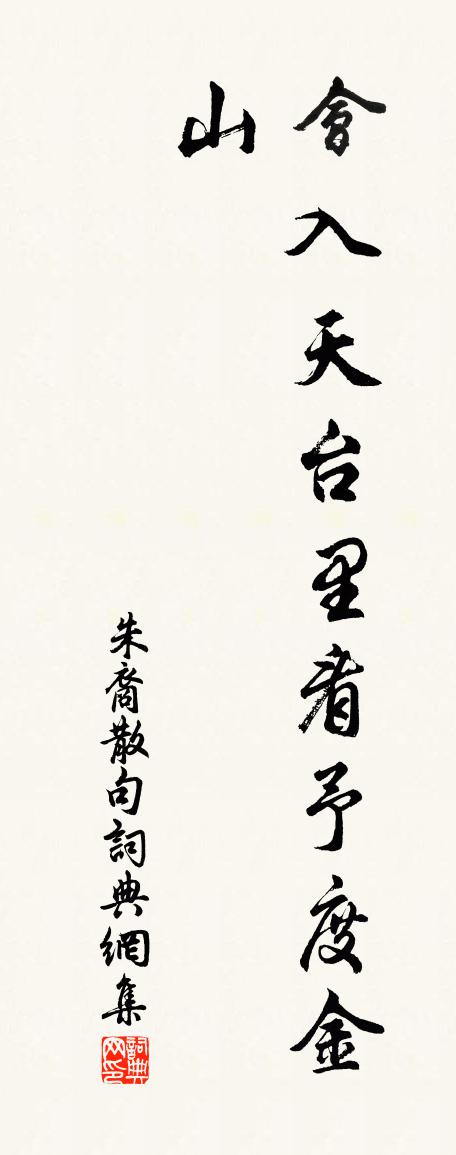 會入天台里看予度金
山
朱裔散句詞典網集
詞典网印